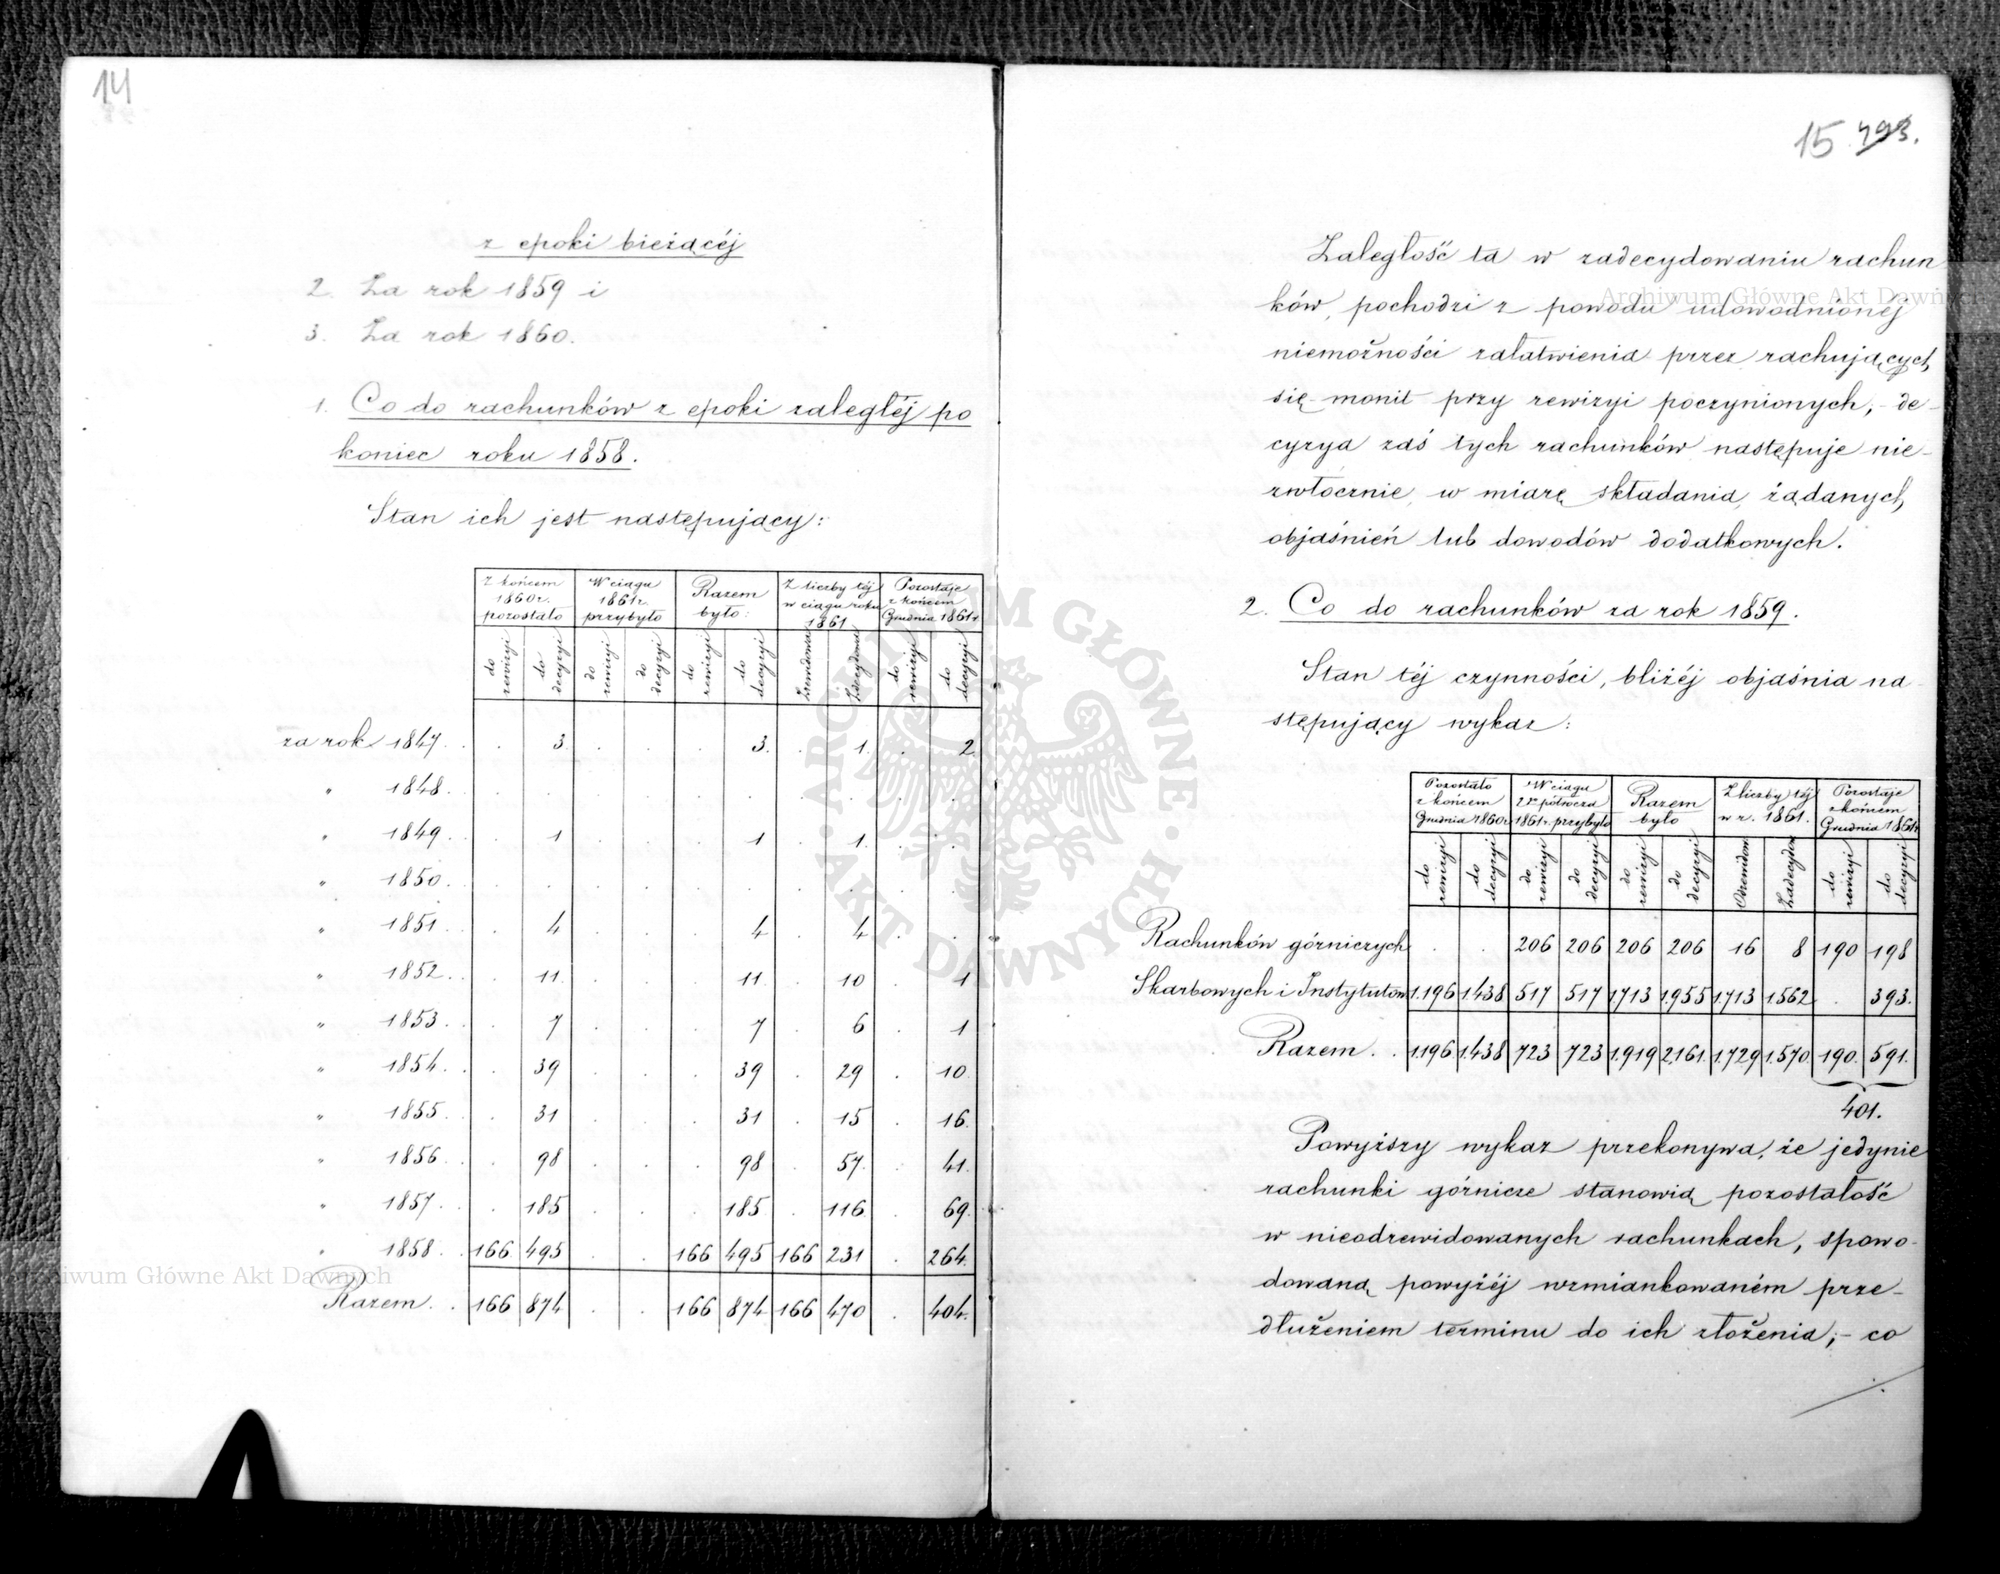 14
z epoki bieżącéj
2. Za rok 1859 i
3. Za rok 1860.
1. Co do rachunków z epoki zaległéj po
koniec roku 1858.
Stan ich jest następujący:
Z końcem 1860 r. pozostało | W ciągu 1861 r. przybyło | Razem było: | Z liczby téj w ciągu roku 1861 | Pozostaje z końcem Grudnia 1861 r.
do rewizyi | do decyzyi | do rewizyi | do decyzyi | do rewizyi | do decyzyi | Zrewidowa | Zdecydowa | do rewizyi | do decyzyi
za rok 1847 . . 3. . . . 3. . 1. . 2.
" 1848. . . . . . . . . . .
" 1849. . 1 . . . 1 . 1. . .
" 1850. . . . . . . . . . .
" 1851 . 4 . . . 4 . 4 . .
" 1852. . 11. . . . 11. . 10 . 1
" 1853. . 7 . . . 7 . 6 . 1
" 1854. . 39 . . . 39 . 29 . 10.
" 1855. . 31 . . . 31 . 15 . 16.
" 1856. . 98 . . . 98 . 57. . 41.
" 1857. . 185 . . . 185 . 116 . 69.
" 1858. 166 495 . . 166 495 166 231 . 264.
Razem. . 166 874 . . 166 874 166 470 . 404.
15 793.
Zaległość ta w zadecydowaniu rachun
ków, pochodzi z powodu udowodnionéj
niemożności załatwienia przez rachujących
się monit przy rewizyi poczynionych; - de-
cyzya zaś tych rachunków następuje nie-
zwłocznie, w miarę składania, żądanych,
objaśnień lub dowodów dodatkowych.
2. Co do rachunków za rok 1859.
Stan téj czynności, bliżéj objaśnia na-
stępujący wykaz:
Pozostało z końcem Grudnia 1860 r. | W ciągu 2go półrocza 1861 r. przybyło | Razem było | Z liczby téj w r. 1861. | Pozostaje z końcem Grudnia 1861 r.
do rewizyi | do decyzyi | do rewizyi | do decyzyi | do rewizyi | do decyzyi | Odrewidow | Zadecydow | do rewizyi | do decyzyi
Rachunków górniczych . . 206 206 206 206 16 8 190 198
Skarbowych i Instytutów 1.196 1.438 517 517 1713 1.955 1.713 1.562 . 393.
Razem. . 1.196 1.438 723 723 1.919 2.161. 1.729 1.570 190. 591.
401.
Powyższy wykaz przekonywa, że jedynie
rachunki górnicze stanowią pozostałość
w nieodrewidowanych rachunkach, spowo-
dowaną powyżéj wzmiankowaném prze-
dłużeniem terminu do ich złożenia; - co
Archiwum Główne Akt Dawnych
ARCHIWUM GŁÓWNE · AKT DAWNYCH ·
Archiwum Główne Akt Dawnych